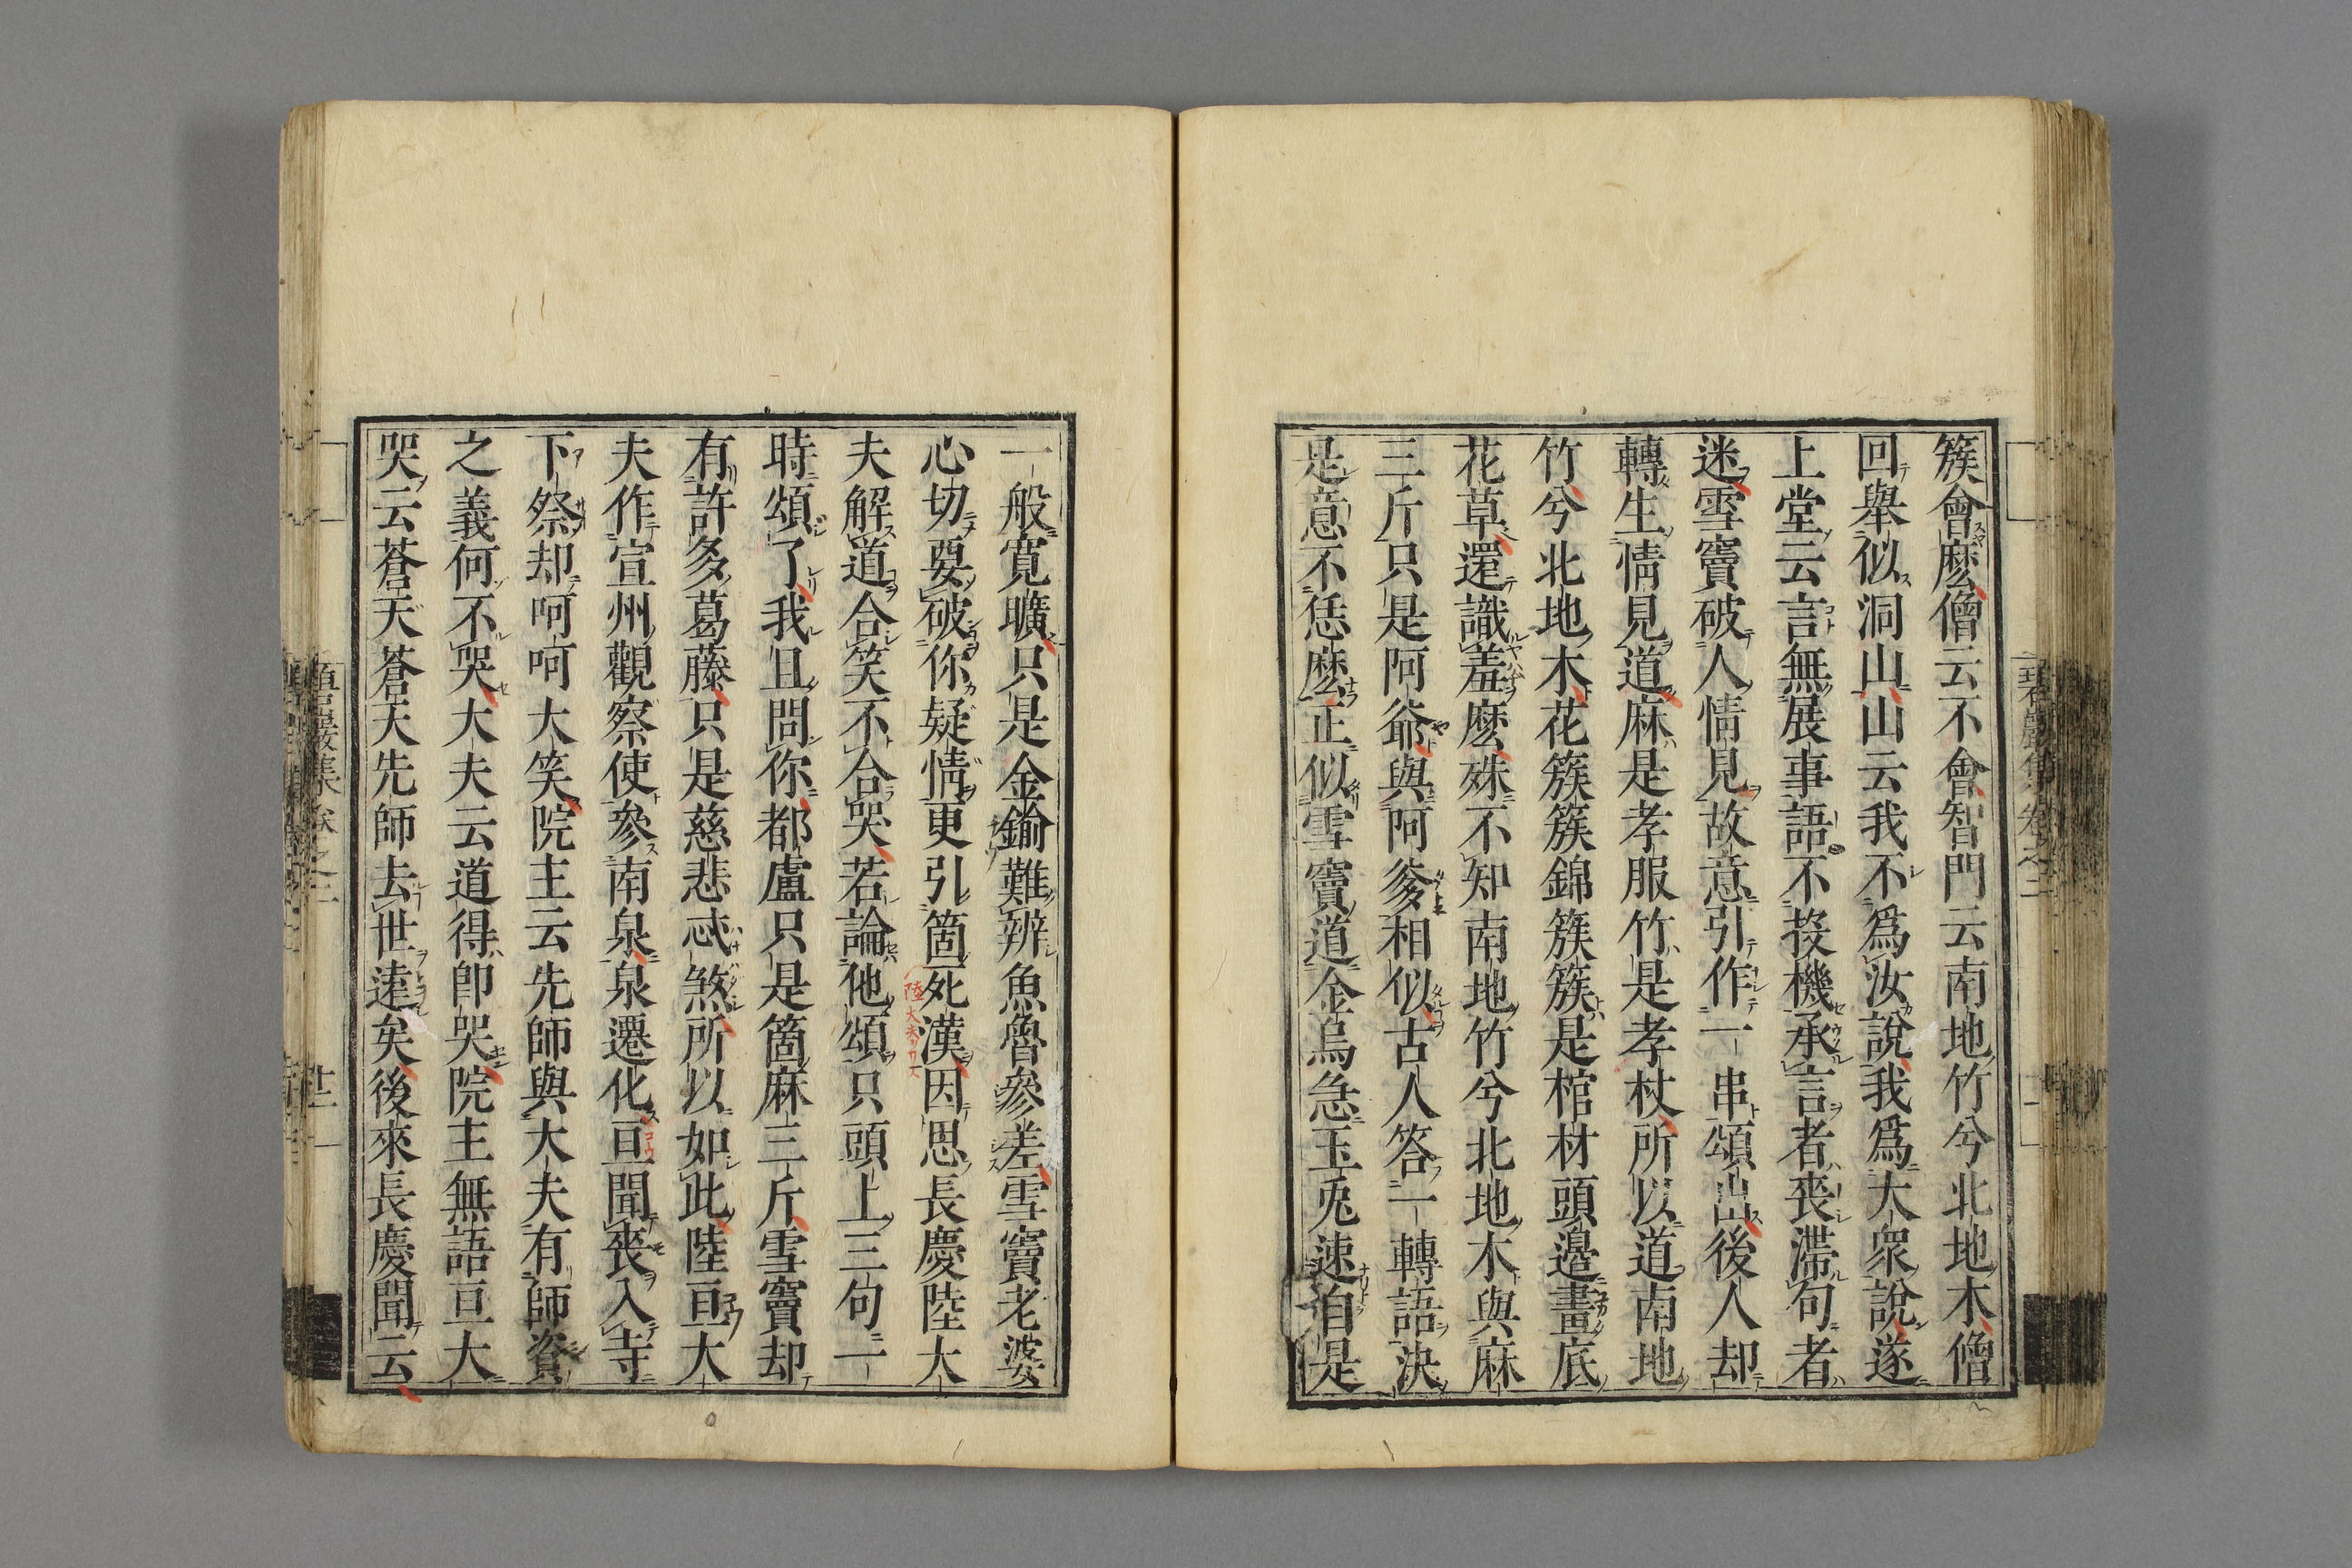 簇會麽僧云不會智門云南地竹兮北地木僧
回舉似洞山山云我不爲汝說我爲大衆說遂
上堂云言無展事語不投機承言者喪滯句者
迷雪竇破人情見故意引作一串頌出後人却
轉生情見道麻是孝服竹是孝杖所以道南地
竹兮北地木花簇簇錦簇簇是棺材頭邊畫底
花草還識羞麽殊不知南地竹兮北地木與麻
三斤只是阿爺與阿爹相似古人答一轉語決
是意不恁麽正似雪竇道金烏急玉兎速自是
一般寬曠只是金鍮難辨魚魯參差雪竇老婆
心切要破你疑情更引箇死漢因思長慶陸大
夫解道合笑不合哭若論他頌只頭上三句一
時頌了我且問你都盧只是箇麻三斤雪竇却
有許多葛藤只是慈悲忒煞所以如此陸亘大
夫作宣州觀察使參南泉泉遷化亘聞喪入寺
下祭却呵呵大笑院主云先師與大夫有師資
之義何不哭大夫云道得卽哭院主無語亘大
哭云蒼天蒼天先師去世遠矣後來長慶聞云
碧巖集卷之二